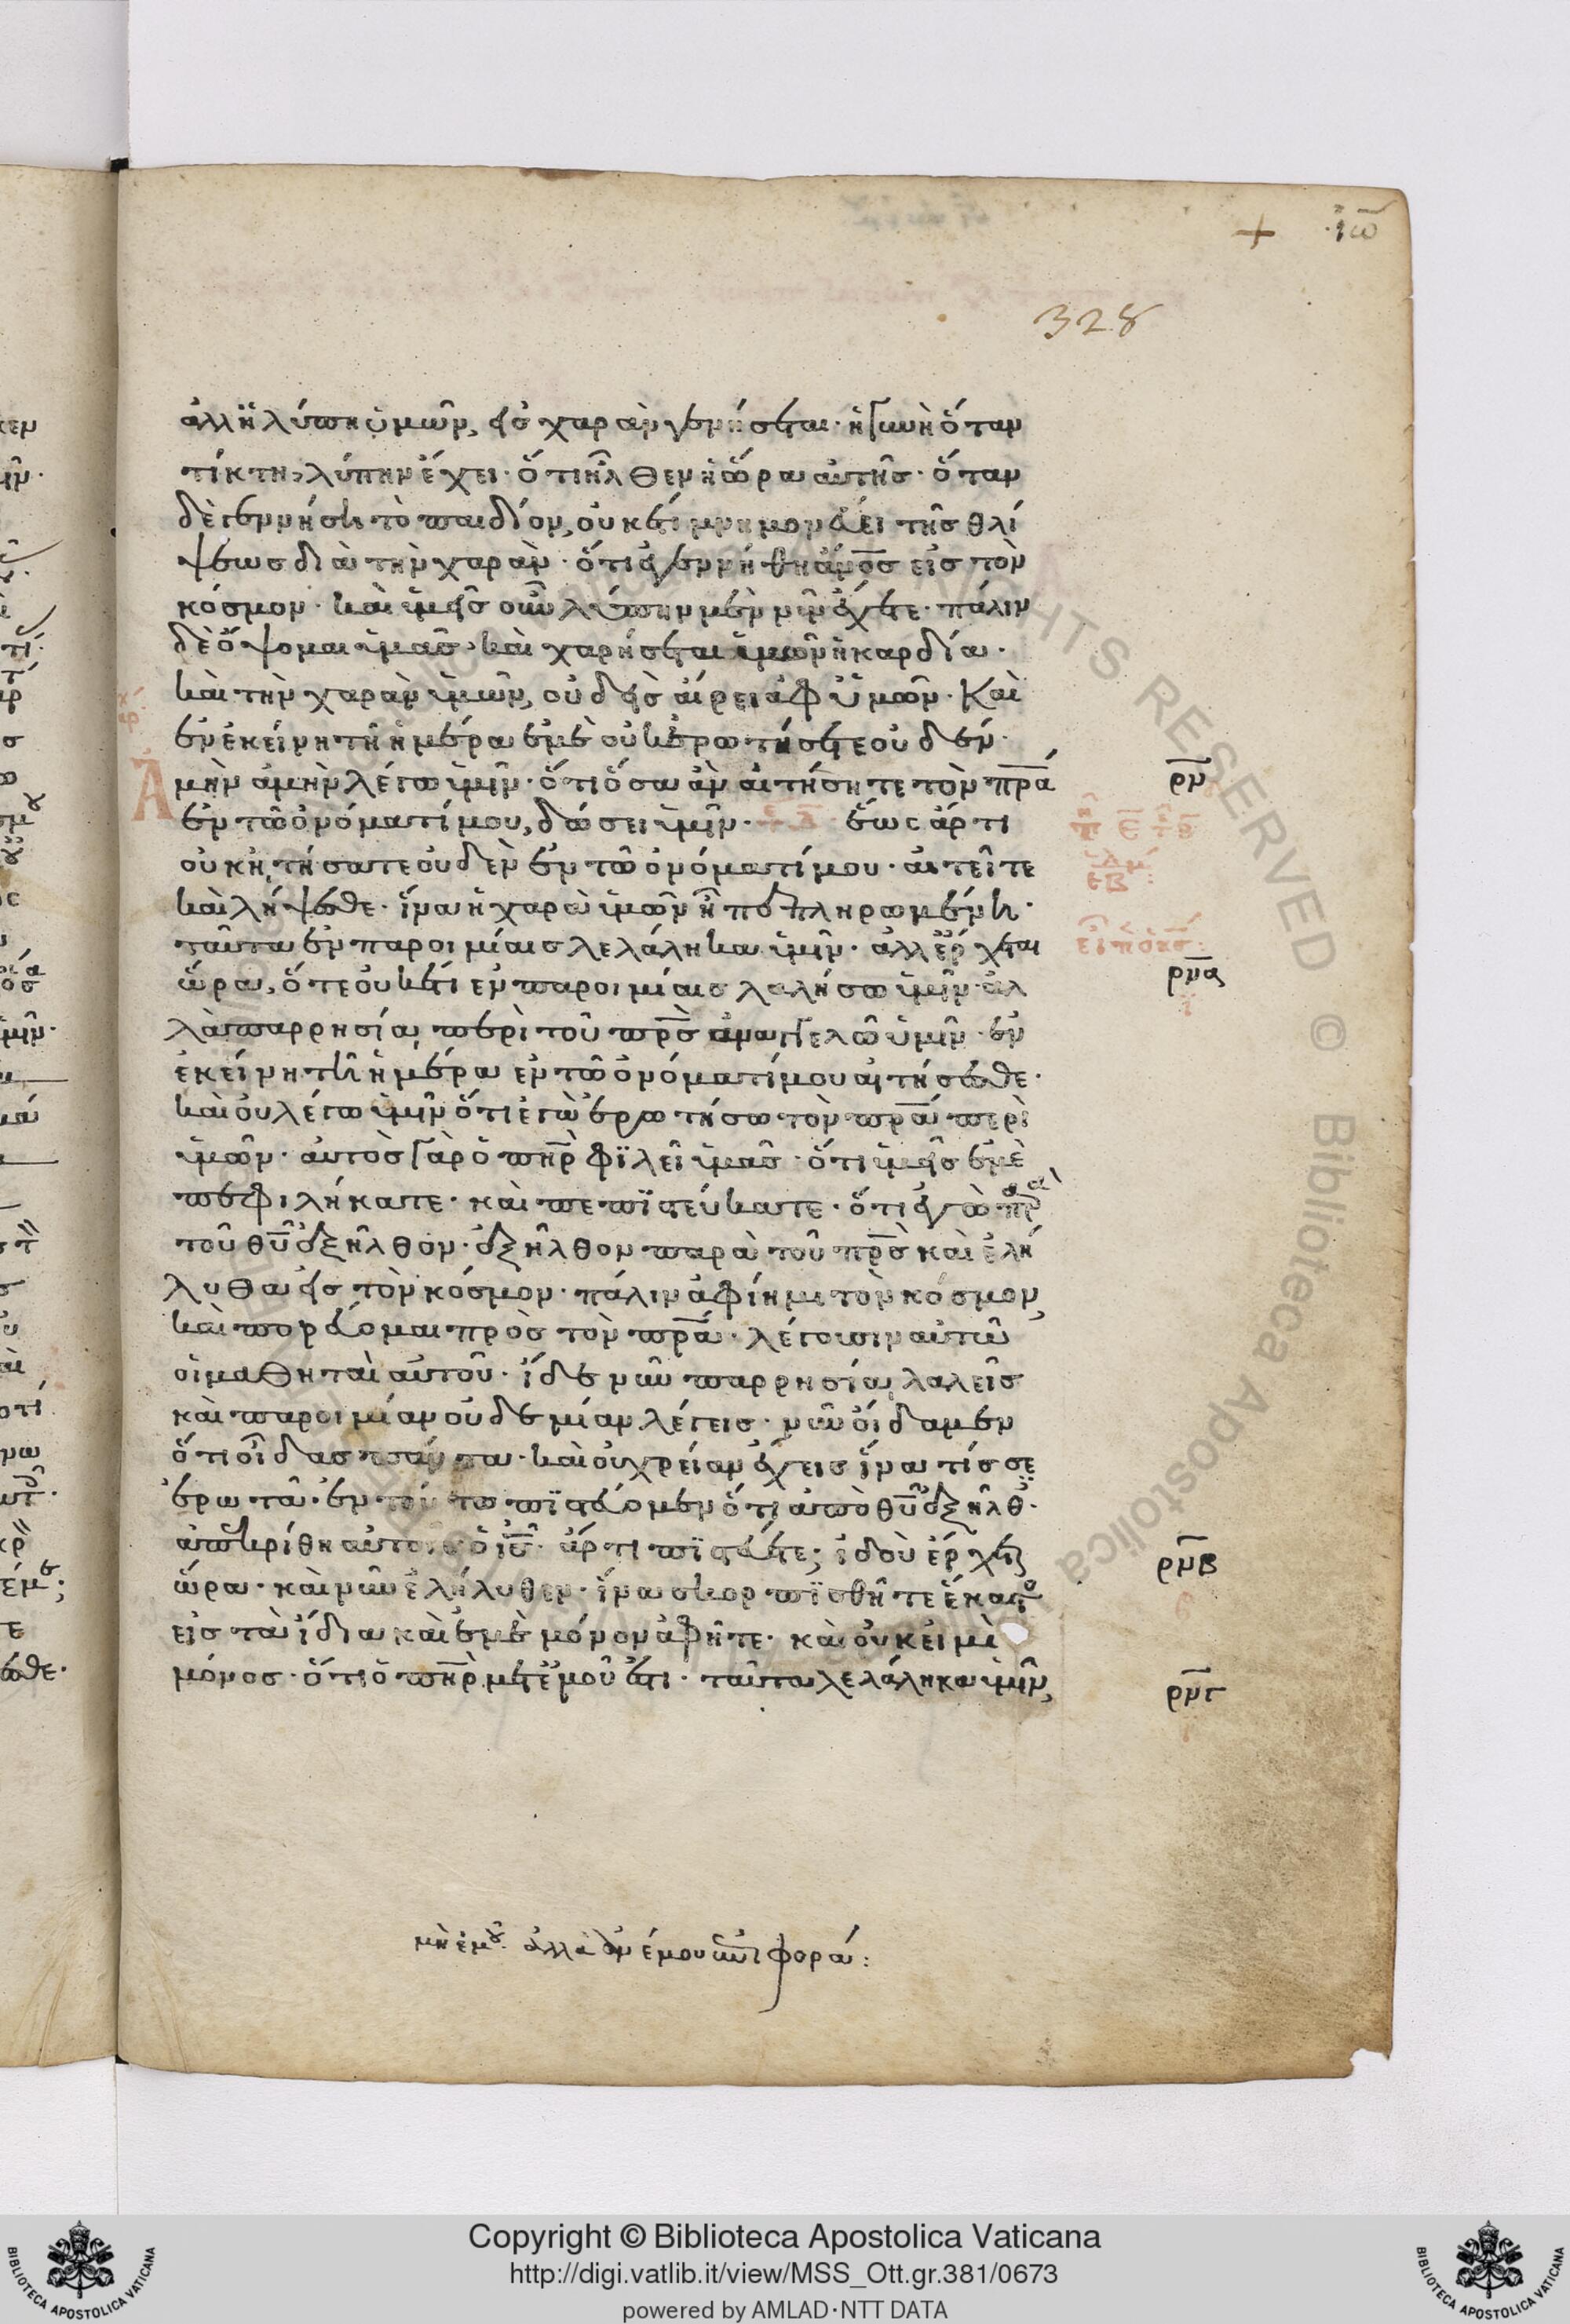 + ἰω̅
328
ἀλλ' ἡ λύπη ὑμῶν, εἰς χαρὰν γενήσεται· ἡ γυνὴ ὅταν
τίκτη, λύπην ἔχει· ὅτι ἦλθεν ἡ ὥρα αὐτῆς· ὅταν
δὲ γεννήση τὸ παιδίον, οὐκέτι μνημονεύει τῆς θλί
ψεως διὰ τὴν χαρὰν· ὅτι ἐγεννήθη ἄν̅ο̅ς εἰς τὸν
κόσμον· καὶ ὑμεῖς οὖν λύπην μὲν νῦν ἔχετε· πάλιν
δὲ ὄψομαι ὑμᾶς· καὶ χαρήσεται ὑμῶν ἡ καρδία·
καὶ τὴν χαρὰν ὑμῶν, οὐδεὶς αἴρει ἀφ' ὑμῶν· Καὶ
ἐν ἐκείνη τῆ ἡμέρα ἐμὲ οὐκ ἐρωτήσετε οὐδέν·
Ἀμὴν ἀμὴν λέγω ὑμῖν· ὅτι ὅσα ἂν αἰτήσητε τὸν π̅ρ̅α̅
ρ̅ν̅
ἐν τῶ ὀνόματί μου, δώσει ὑμῖν· ἕως ἄρτι
οὐκ ἠτήσατε οὐδὲν ἐν τῶ ὀνόματί μου· αἰτεῖτε
καὶ λήψεσθε· ἵνα ἡ χαρὰ ὑμῶν ἦ πεπληρωμένη·
ταῦτα ἐν παροιμίαις λελάληκα ὑμῖν· ἀλλ' ἔρχεται
ρ̅ν̅α̅
ὥρα, ὅτε οὐκέτι ἐν παροιμίαις λαλήσω ὑμῖν· ἀλ
λὰ παρρησία περὶ τοῦ π̅ρ̅ς̅ ἀναγγελῶ ὑμῖν· ἐν
ἐκείνη τῆ ἡμέρα ἐν τῶ ὀνόματί μου αἰτήσεσθε·
καὶ οὐ λέγω ὑμῖν ὅτι ἐγὼ ἐρωτήσω τὸν π̅ρ̅α̅ περὶ
ὑμῶν· αὐτὸς γὰρ ὁ π̅η̅ρ̅ φϊλεῖ ὑμᾶς· ὅτι ὑμεῖς ἐμὲ
πεφιλήκατε· καὶ πεπϊστεύκατε· ὅτι ἐγὼ παρὰ
τοῦ θ̅υ̅ ἐξῆλθον· ἐξῆλθον παρὰ τοῦ π̅ρ̅ς̅ καὶ ἐλή
λυθα εἰς τὸν κόσμον· πάλιν ἀφίημι τὸν κόσμον,
καὶ πορεύομαι πρὸς τὸν π̅ρ̅α̅· λέγουσιν αὐτῶ
οἱ μαθηταὶ αὐτοῦ· ἴδε νῦν παρρησία λαλεῖς
καὶ παροιμίαν οὐδεμίαν λέγεις· νῦν οἴδαμεν
ὅτι οἶδας πάντα· καὶ οὐ χρείαν ἔχεις ἵνα τίς σε
ἐρωτᾶ· ἐν τούτω πϊστεύομεν ὅτι ἀπὸ θ̅υ̅ ἐξῆλθ̅·
ἀπεκρίθη αὐτοῖς ὁ ι̅ς̅· ἄρτι πϊστεύετε; ἰδοὺ ἔρχεται
ρ̅ν̅β̅
ὥρα· καὶ νῦν ἐλήλυθεν· ἵνα σκορπϊσθῆτε ἕκαστος
εἰς τὰ ἴδια καὶ ἐμὲ μόνον ἀφῆτε· καὶ οὐκ εἰμὶ
μόνος· ὅτι ὁ π̅η̅ρ̅ μετ' ἐμοῦ ἐστι· ταῦτα λελάληκα ὑμῖν,
ρ̅ν̅γ̅
Copyright © Biblioteca Apostolica Vaticana
http://digi.vatlib.it/view/MSS_Ott.gr.381/0673
powered by AMLAD·NTT DATA